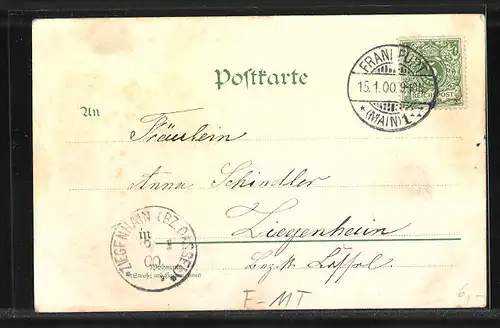 Postkarte
FRANKFURT
15.1.00.9-10N.
* (MAIN) 1 *
REICHSPOST
An
Fräulein
Anna Schindler
in
Ziegenhain
Bezirk Cassel
ZIEGENHAIN (BZ. CASSEL)
00
Wohnung
F-MT
6,-